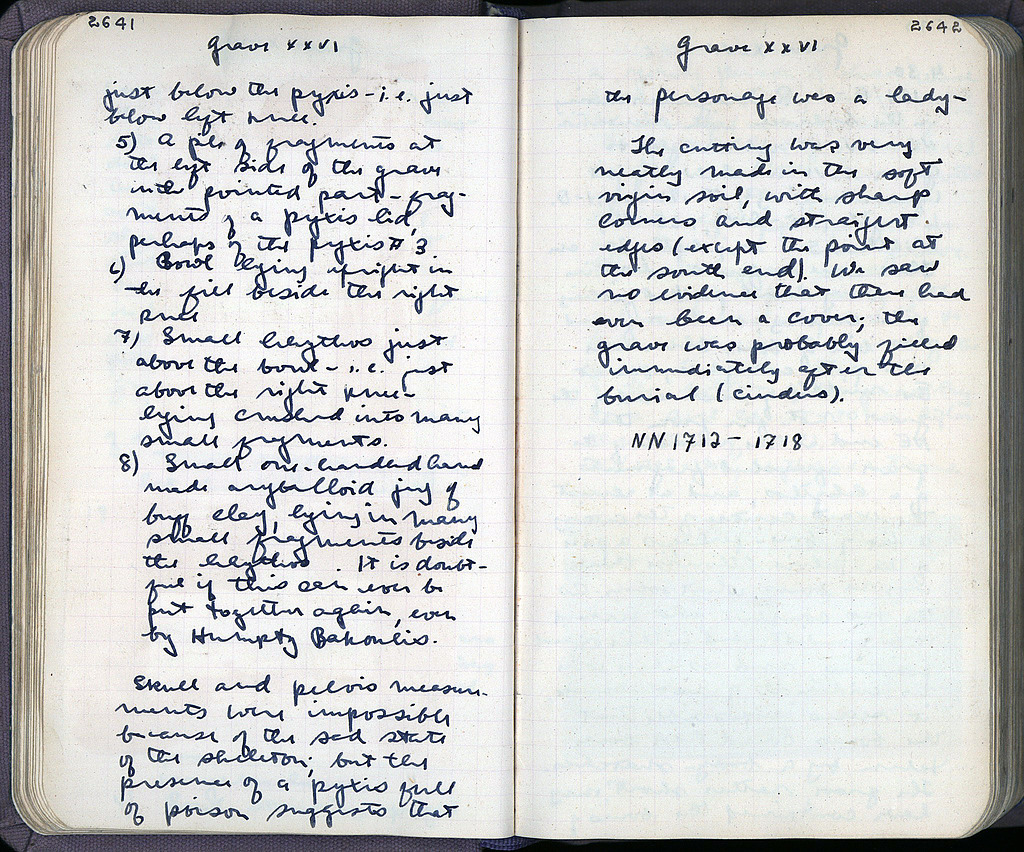 2641
Grave XXVI
just below the pyxis - i.e. just
below left knee.
5) A pile of fragments at
the left side of the grave
in the pointed part - frag-
ments of a pyxis lid,
perhaps of the pyxis # 3.
6) Bowl lying upright in
the fill beside the right
knee
7) Small lekythos just
above the bowl - i.e. just
above the right knee -
lying crushed into many
small fragments.
8) Small one-handled hand
made aryballoid jug of
buff clay, lying in many
small fragments beside
the lekythos. It is doubt-
ful if this can ever be
put together again, even
by Humpty Bakoulis.
Skull and pelvis measure-
ments were impossible
because of the sad state
of the skeleton; but the
presence of a pyxis full
of poison suggests that
2642
Grave XXVI
the personage was a lady -
The cutting was very
neatly made in the soft
virgin soil, with sharp
corners and straight
edges (except the point at
the south end). We saw
no evidence that there had
ever been a cover; the
grave was probably filled
immediately after the
burial (cinders).
NN 1712 - 1718